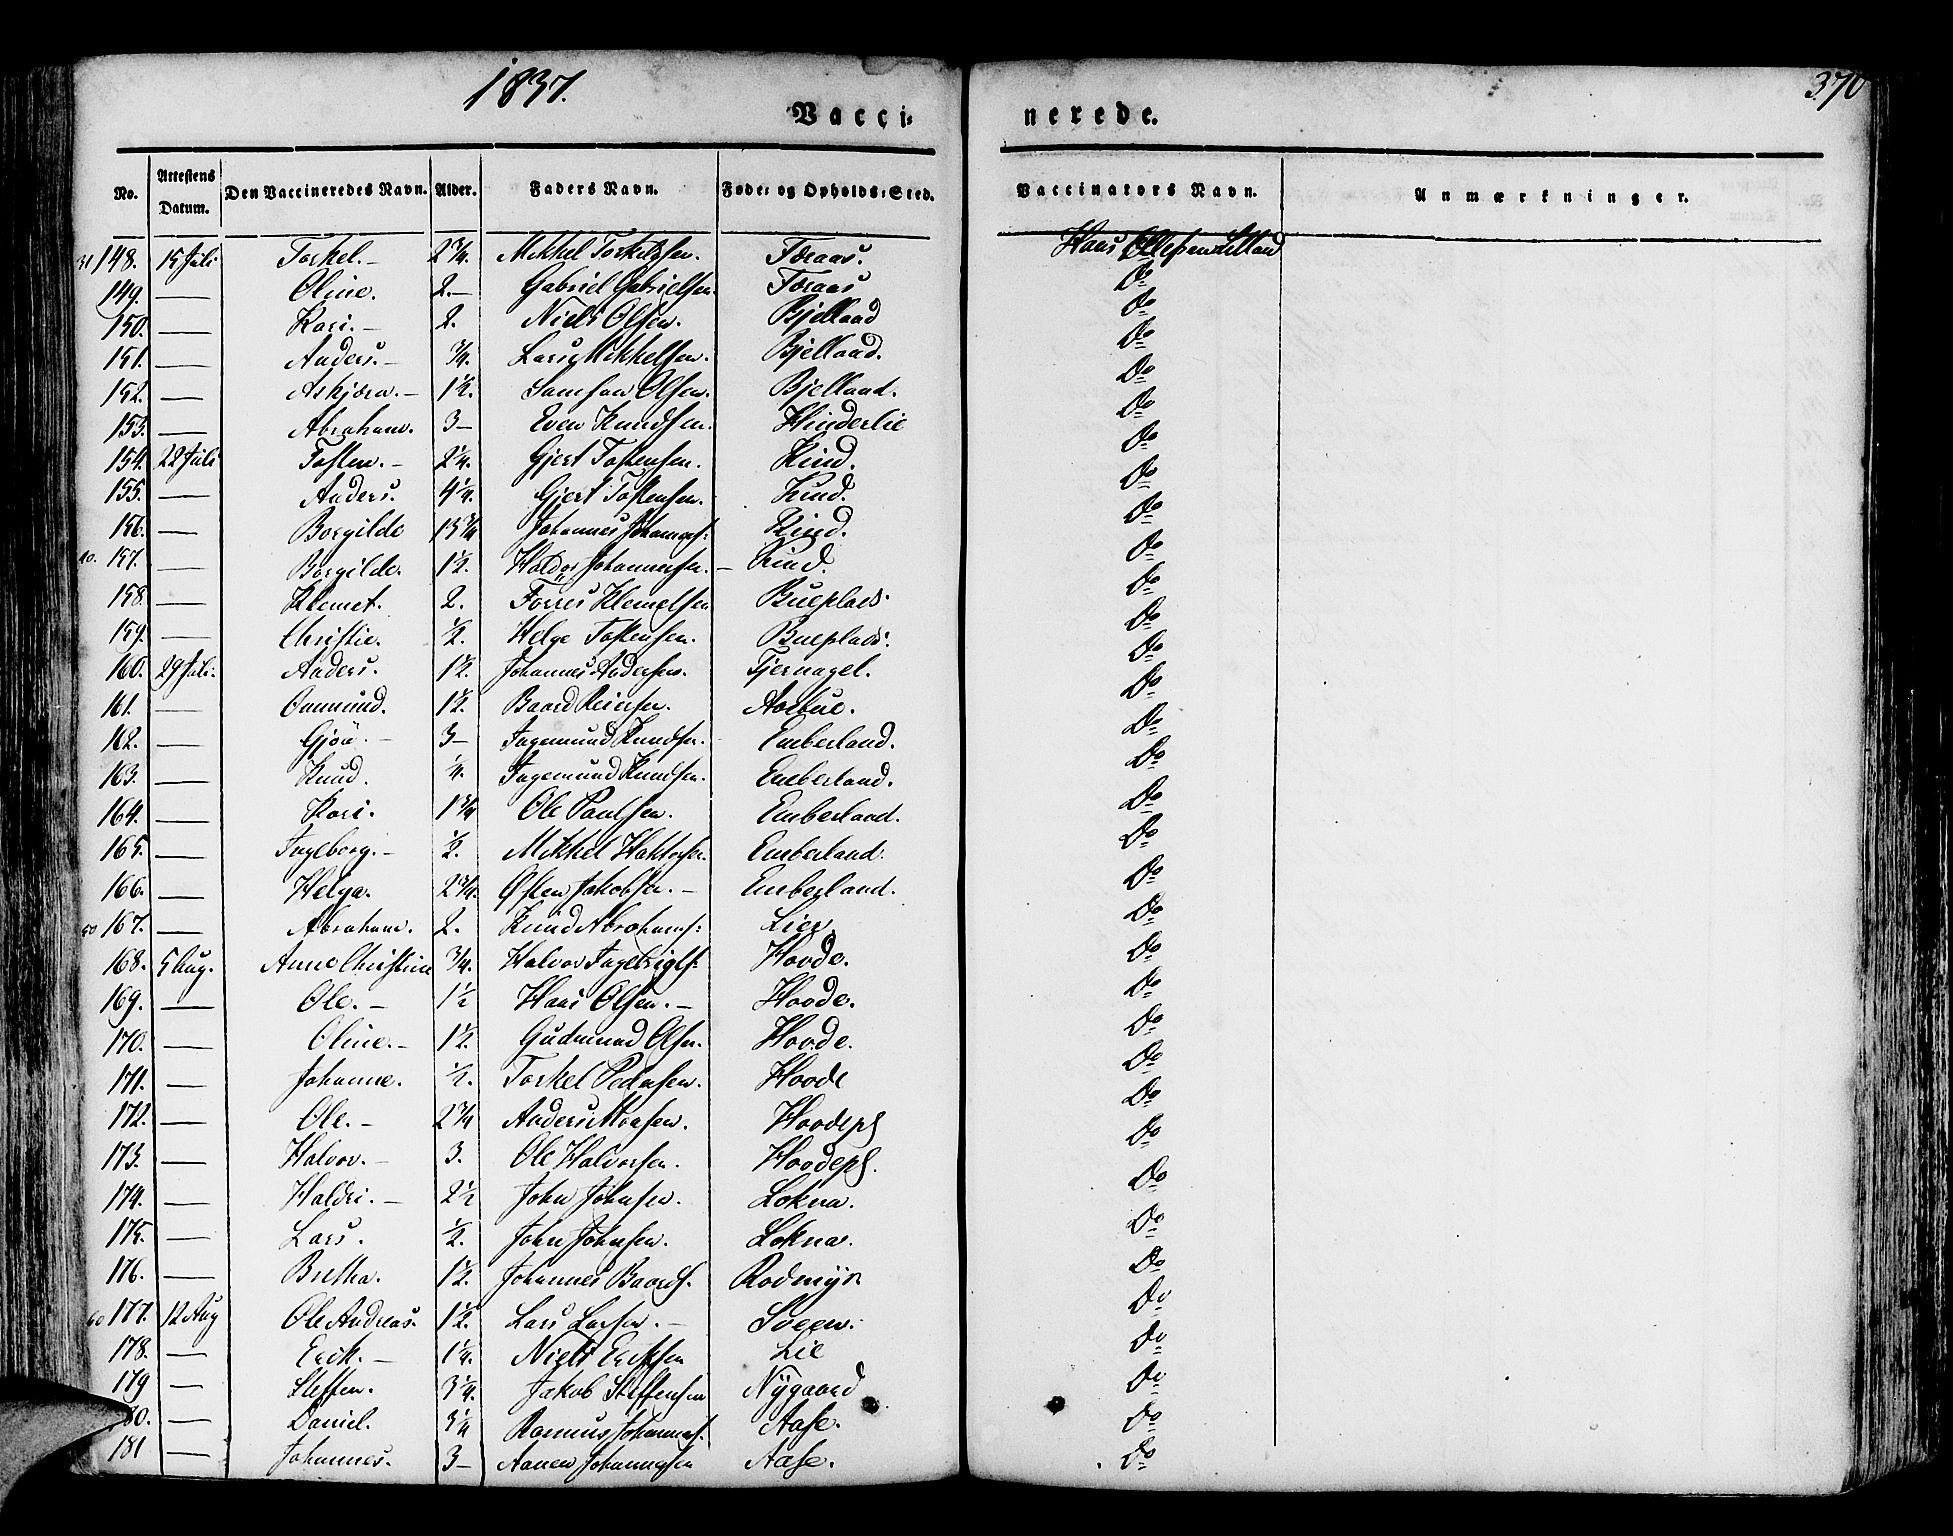 1837.
370
Vacci- nerede.
No. Attestens Datum. Den Vaccineredes Navn. Alder. Faders Navn. Føde- og Opholds-Sted. Vaccinators Navn. Anmærkninger.
148. 15 Juli Torkel. 2 3/4. Mikkel Torkelssen. Foraas. Haas
149. — Oline. 2. Gabriel Gabrielsen. Foraas Do
150. — Kari. 2. Niels Olsen. Bjelland Do
151. — Anders. 3/4. Lars Mikkelsen. Bjelland. Do
152. — Askjæra. 1 1/2. Samson Olsen. Bjelland. Do
153. — Abraham. 3 Even Knudsen. Hinderlie Do
154. 22 Juli Tosten. 2 1/4. Gjert Tostensen. Rind. Do
155. — Anders. 4 1/4. Gjert Tostensen. Rind. Do
156. — Borgilde 15 3/4 Johannes Johannes: Rind. Do
40. 157. — Borgilde. 1 1/2. Haldor Johannesen. Rind. Do
158. — Klemet. 2. Torres Klemetsen Bueplads. Do
159. — Christie. 1/2. Helge Tostensen. Bueplads. Do
160. 29 Juli. Anders. 1 1/2. Johannes Andersen. Tjernagel. Do
161. — Onmund. 1 1/2. Baard Reiersen. Aarbue. Do
162. — Gjøa. 3 Ingemund Knudsen. Emberland. Do
163. — Knud. 1/4. Ingemund Knudsen. Emberland. Do
164. — Kari. 1 3/4 Ole Paulsen. Emberland. Do
165. — Ingeborg. 1/2. Mikkel Emberland. Do
166. — Helga. 2 3/4. Østen Jakobsen. Emberland. Do
50 167. — Abraham. 2. Knud Abrahams: Lier. Do
168. 5 Aug. Anne Christine 3/4. Halvor Ingebrigts: Hovde. Do
169. — Ole. 1 1/2 Hans Olsen. Hovde. Do
170. — Oline. 1 1/2. Gudmund Olsen. Hovde. Do
171. — Johanne. 1/2. Torkel Pedersen. Hovde Do
172. — Ole. 2 3/4 Anders Hovdepl Do
173. — Halvor. 3. Ole Halvorsen. Hovdepl. Do
174. — Haldri. 2 1/2 John Johnsen. Lokna. Do
175. — Lars. 1/2. John Johnsen. Lokna. Do
176. — Bretha. 1 1/2. Johannes Baards. Rodmyr Do
60 177. 12 Aug Ole Andreas. 1 1/2. Lars Larsen. Sveen. Do
178. — Erik. 1 1/4. Niels Eriksen Lie Do
179 — Steffen. 3 1/4. Jakob Steffensen Nygaard Do
80. — Daniel. 3 1/4 Rasmus Johannes. Aase. Do
181 — Johannes. 3 Aanen Johannesen Aase. Do